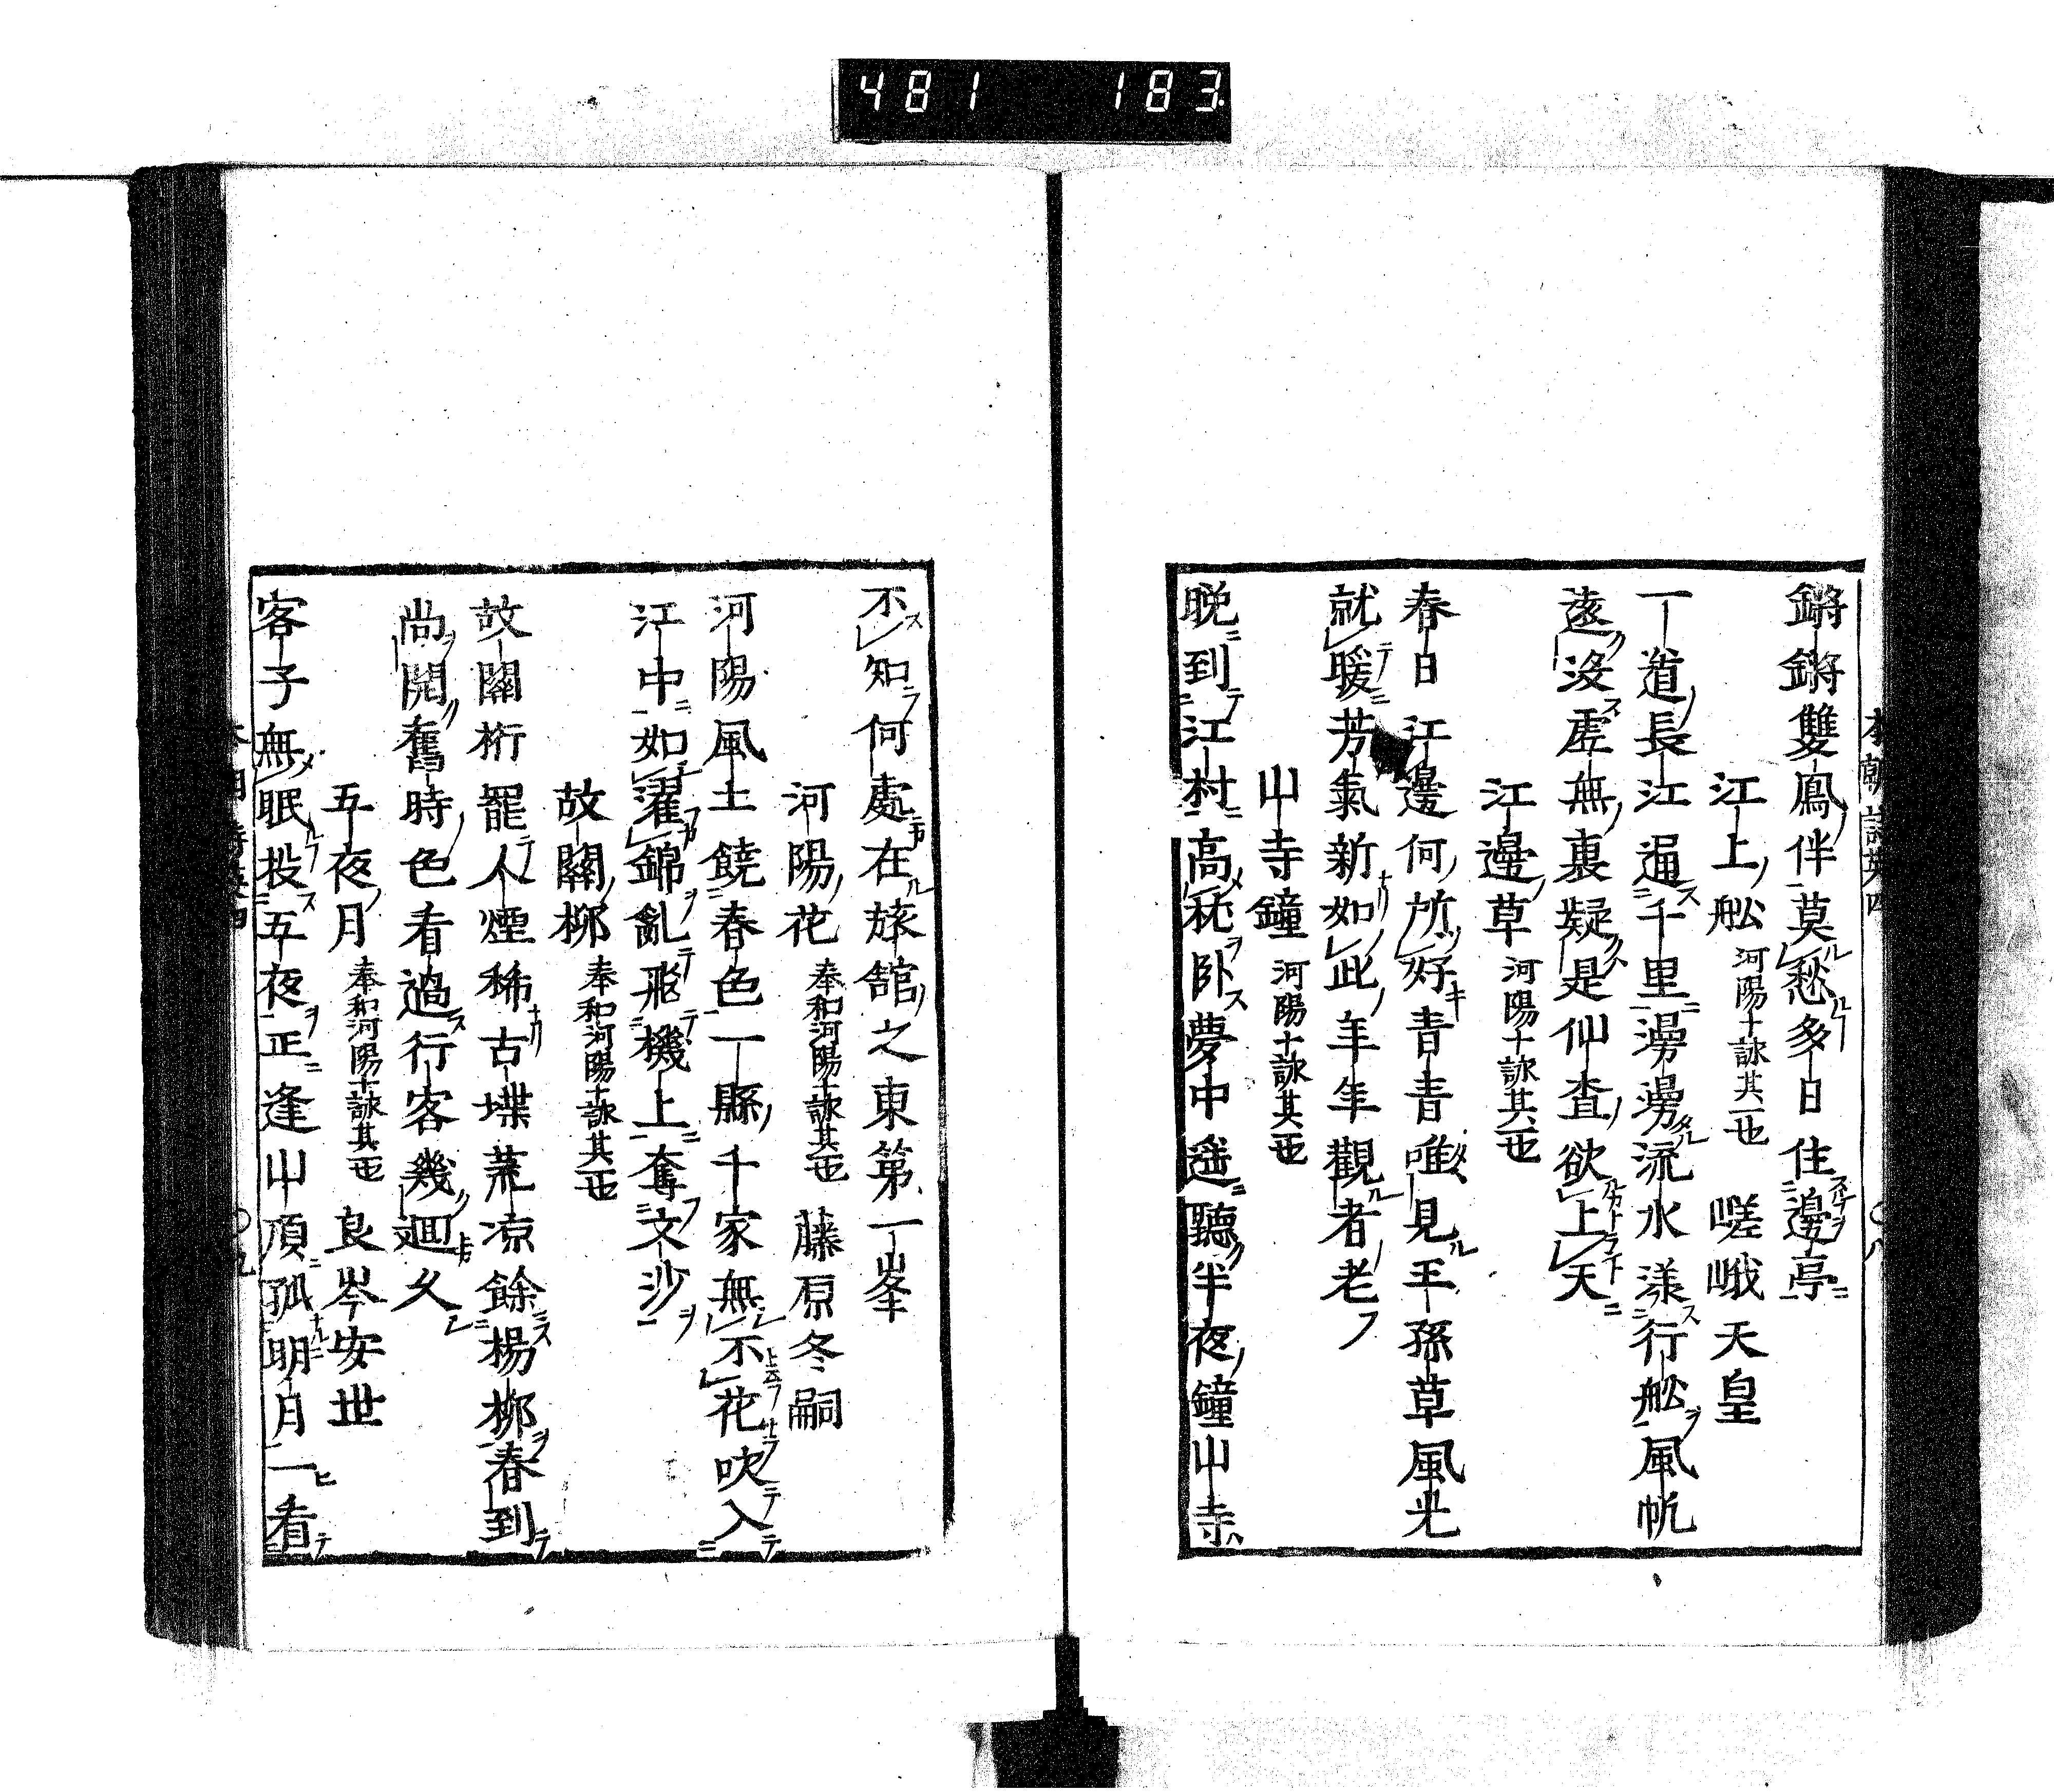 481 183
本朝詩英四 〇八
鏘鏘雙鳳伴莫愁多日住邊亭
江上舩 河陽十詠其一也 嵯峨天皇
一道長江逼千里漫漫流水漾行舩風帆
遠沒虛無裏疑是仙査欲上天
江邊草 河陽十詠其一也
春日江邊何所好青青唯見王孫草風光
就暖芳氣新如此年年觀者老
山寺鐘 河陽十詠其一也
晚到江村高枕臥夢中遥聽半夜鐘山寺
不知何處在旅舘之東第一峯
河陽花 奉和河陽十詠其一也 藤原冬嗣
河陽風土饒春色一縣千家無不花吹入
江中如濯錦亂飛機上奪文沙
故關柳 奉和河陽十詠其一也
故關析罷人煙稀古堞荒凉餘楊柳春到
尚開舊時色看過行客幾迴久
五夜月 奉和河陽十詠其一也 良岑安世
客子無眠投五夜正逢山頂孤明月一看